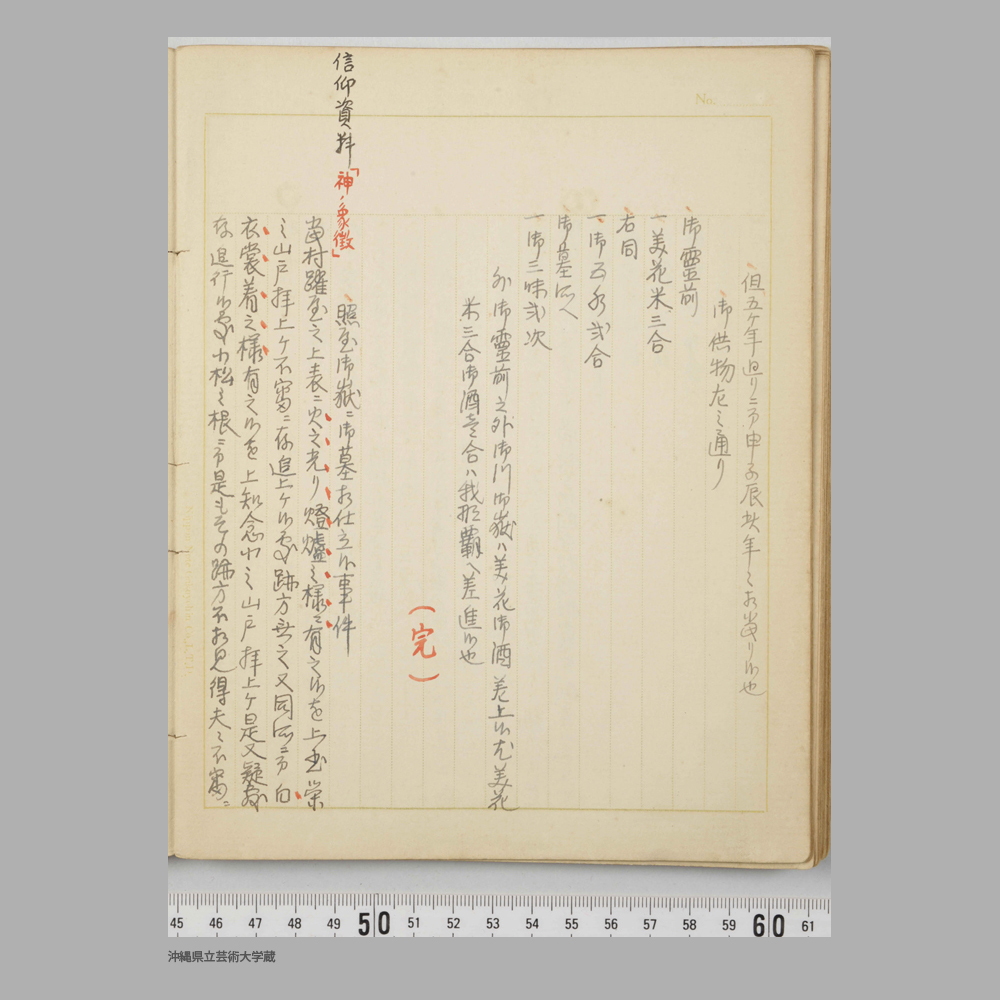 No.
但五ケ年廻リニ而申子辰以年ミ相當リ候也
御供物左ミ通り
御靈前
一 美花米三合
右同
一 御五水弐合
御墓所へ
一 御三味弐次
外御靈前之外御川御嶽ハ美花御酒差上候尤美花
米三合御酒壱合ハ我那覇へ差進候也
(完)
信仰資料「神ノ象徴」
照屋御嶽ニ御墓相仕立候事件
當村躍屋之上表ニ火之光リ燈爐ミ様ニ有之候を上玉栄
ミ山戸拝上ケ不審ニ存追上ケ候處跡方無之又同所ニ而白
衣裳着之様有之候を上知念小ミ山戸拝上ケ是又疑敷
存追行候處小松ミ根ニ而是もその跡方不相見得夫ミ不審ニ
45 46 47 48 49 50 51 52 53 54 55 56 57 58 59 60 61
沖縄県立芸術大学蔵